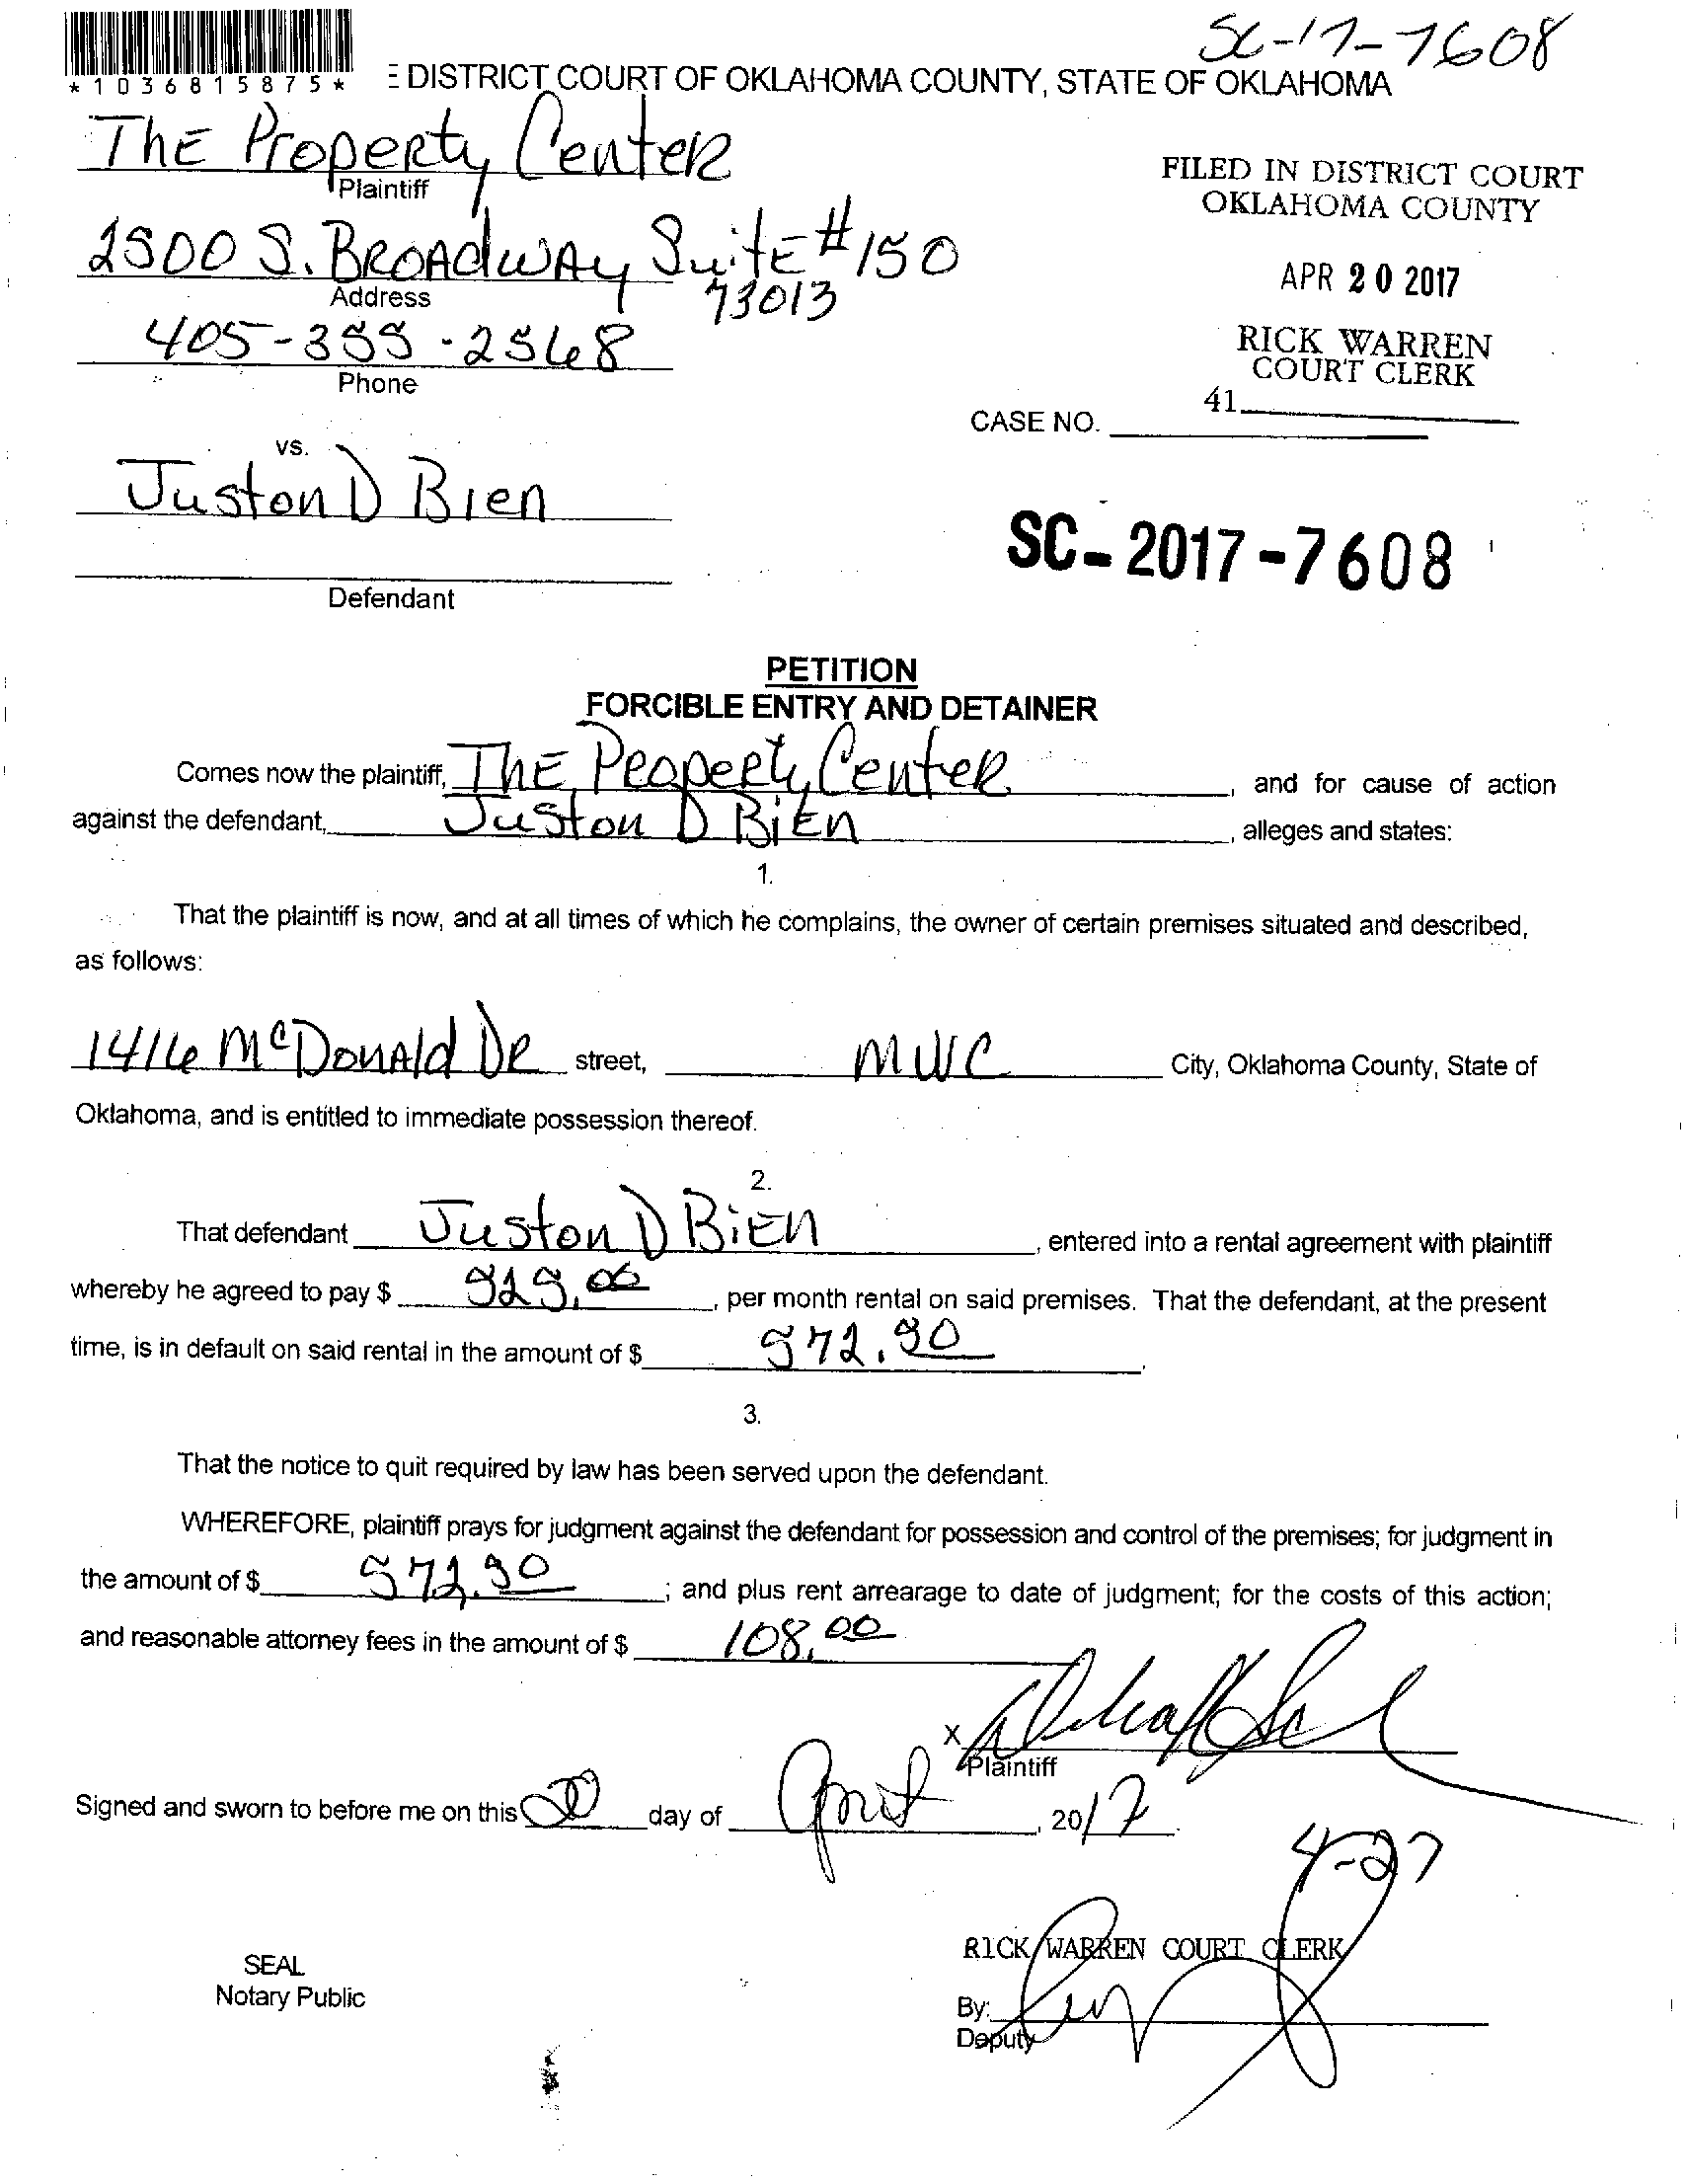 SC-17-7608
*1036815875*
E DISTRICT COURT OF OKLAHOMA COUNTY, STATE OF OKLAHOMA
The Property Center
Plaintiff
FILED IN DISTRICT COURT
OKLAHOMA COUNTY
2500 S. Broadway Suite #150
73013
Address
APR 20 2017
405-355-2568
Phone
RICK WARREN
COURT CLERK
41
CASE NO.
vs.
Juston D Bien
SC-2017-7608
Defendant
PETITION
FORCIBLE ENTRY AND DETAINER
Comes now the plaintiff, The Property Center, and for cause of action
against the defendant, Juston D Bien, alleges and states:
1.
That the plaintiff is now, and at all times of which he complains, the owner of certain premises situated and described,
as follows:
1416 McDonald Dr street, MWC City, Oklahoma County, State of
Oklahoma, and is entitled to immediate possession thereof.
2.
That defendant Juston D Bien, entered into a rental agreement with plaintiff
whereby he agreed to pay $ 525.00, per month rental on said premises. That the defendant, at the present
time, is in default on said rental in the amount of $ 572.50.
3.
That the notice to quit required by law has been served upon the defendant.
WHEREFORE, plaintiff prays for judgment against the defendant for possession and control of the premises; for judgment in
the amount of $ 572.50; and plus rent arrearage to date of judgment; for the costs of this action;
and reasonable attorney fees in the amount of $ 108.00
X
Plaintiff
Signed and sworn to before me on this 20 day of April, 2017
4-27
RICK WARREN COURT CLERK
SEAL
Notary Public
By:
Deputy